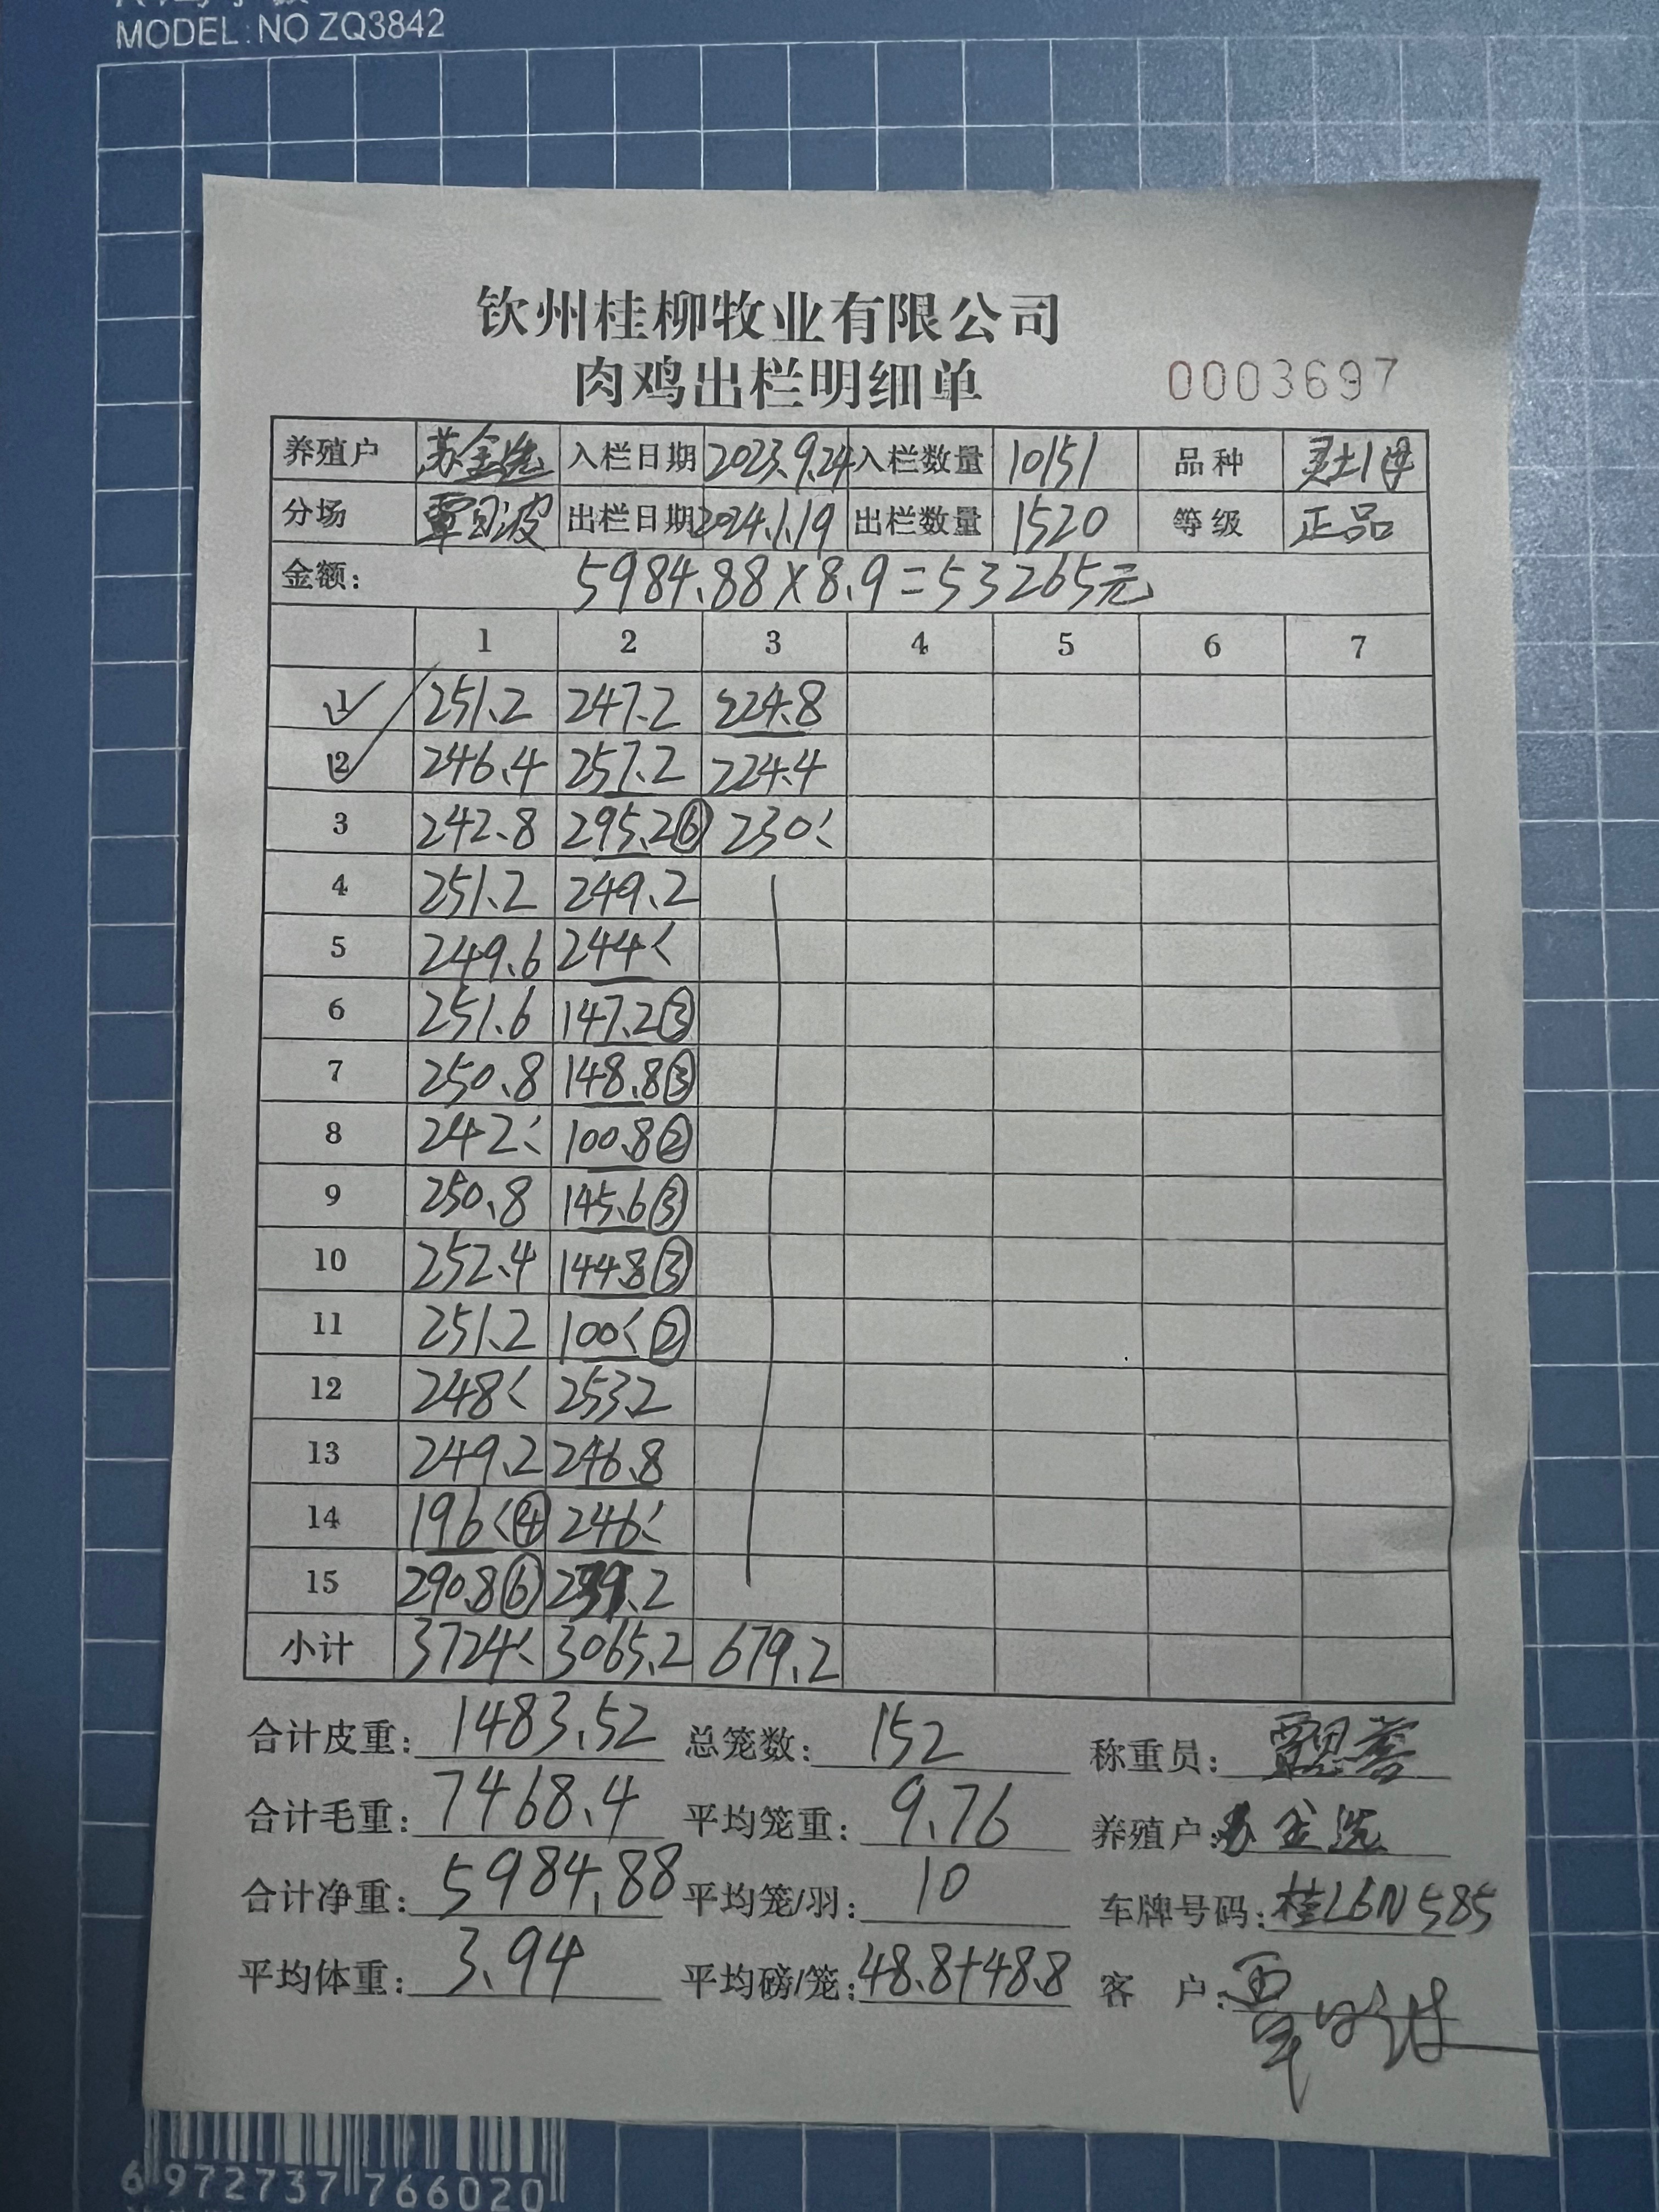 MODEL: NO ZQ3842
钦州桂柳牧业有限公司
肉鸡出栏明细单 0003697
养殖户 苏金选 入栏日期 2023.9.24 入栏数量 10151 品种
分场 出栏日期 2024.1.19 出栏数量 1520 等级 正品
金额: 5984.88×8.9=53265元
1 2 3 4 5 6 7
1 251.2 247.2 224.8
2 246.4 257.2 224.4
3 242.8 295.2⑥ 230
4 251.2 249.2
5 249.6 244
6 251.6 147.2③
7 250.8 148.8③
8 242 100.8②
9 250.8 145.6③
10 252.4 144.8③
11 251.2 100②
12 248 253.2
13 249.2 246.8
14 196④ 246
15 290.8⑥
小计 3724 3065.2 679.2
合计皮重: 1483.52 总笼数: 152 称重员:
合计毛重: 7468.4 平均笼重: 9.76 养殖户: 苏金选
合计净重: 5984.88 平均笼/羽: 10 车牌号码: 桂L6N585
平均体重: 3.94 平均磅/笼: 48.8+48.8 客户:
6 972737 766020